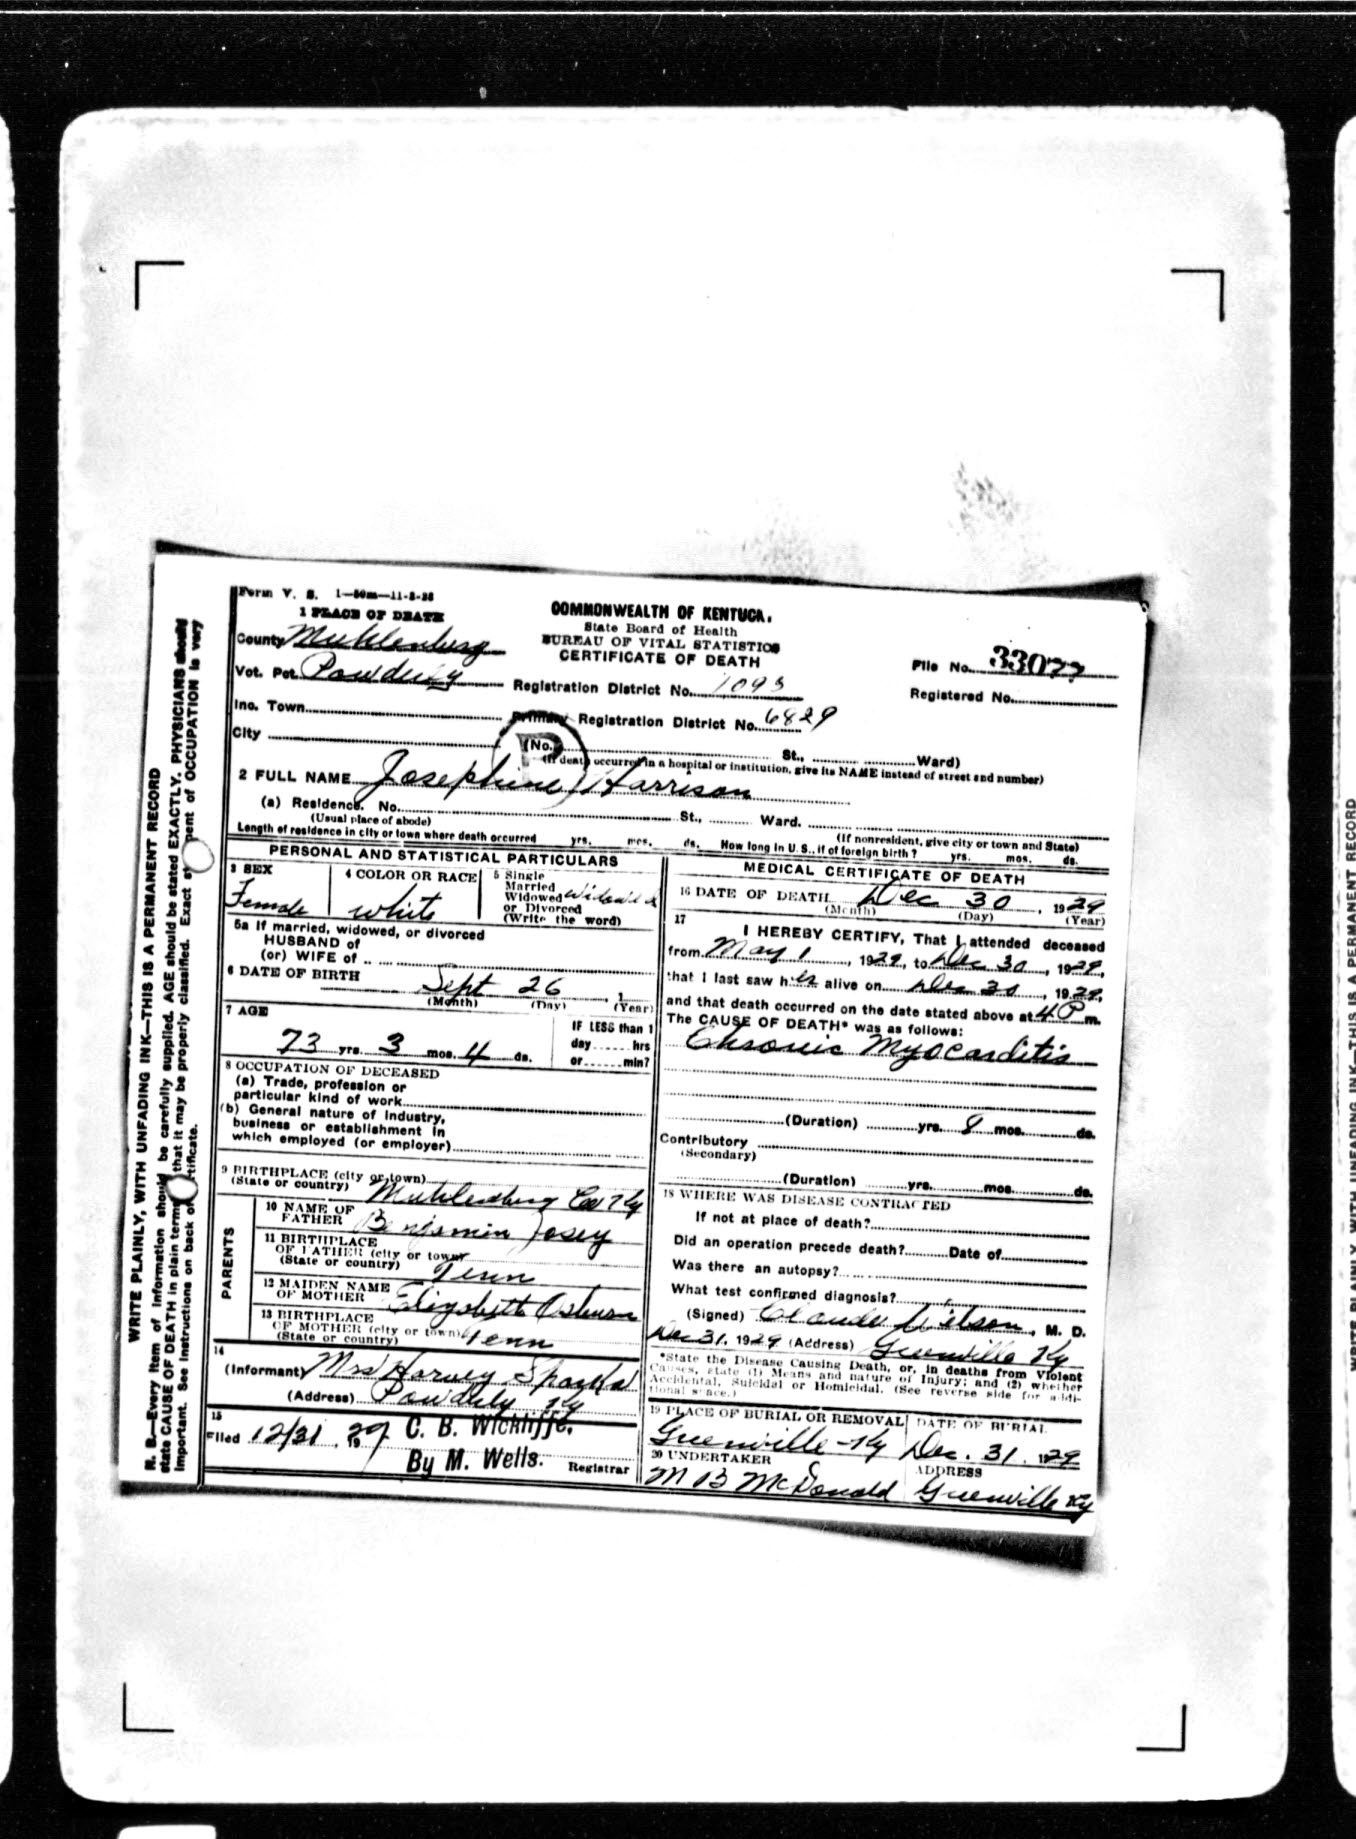 Form V. S. 1—50m—11-8-28
1 PLACE OF DEATH
COMMONWEALTH OF KENTUCK.
State Board of Health
BUREAU OF VITAL STATISTICS
CERTIFICATE OF DEATH
County Muhlenburg
Vot. Pct. Powderly
Inc. Town
City
File No. 33077
Registered No.
Registration District No. 1093
Primary Registration District No. 6829
(No. St., Ward)
(If death occurred in a hospital or institution, give its NAME instead of street and number)
2 FULL NAME Josephine Harrison
(a) Residence. No. St., Ward.
(Usual place of abode) (If nonresident, give city or town and State)
Length of residence in city or town where death occurred yrs. mos. ds. How long in U. S., if of foreign birth? yrs. mos. ds.
PERSONAL AND STATISTICAL PARTICULARS
3 SEX
Female
4 COLOR OR RACE
white
5 Single
Married
Widowed
or Divorced
(Write the word)
Widowed
5a If married, widowed, or divorced
HUSBAND of
(or) WIFE of
6 DATE OF BIRTH
Sept 26, 1
(Month) (Day) (Year)
7 AGE
73 yrs. 3 mos. 4 ds.
IF LESS than 1
day hrs
or min?
8 OCCUPATION OF DECEASED
(a) Trade, profession or
particular kind of work
(b) General nature of Industry,
business or establishment in
which employed (or employer)
9 BIRTHPLACE (city or town)
(State or country) Muhlenburg Co Ky
PARENTS
10 NAME OF
FATHER Benjamin Josey
11 BIRTHPLACE
OF FATHER (city or town)
(State or country) Tenn
12 MAIDEN NAME
OF MOTHER Elizabeth
13 BIRTHPLACE
OF MOTHER (city or town)
(State or country) Tenn
14
(Informant) Mrs Harvey Sparks
(Address) Powderly Ky
15
Filed 12/31, 1929 C. B. Wickliffe,
By M. Wells. Registrar
MEDICAL CERTIFICATE OF DEATH
16 DATE OF DEATH Dec 30, 1929
(Month) (Day) (Year)
17 I HEREBY CERTIFY, That I attended deceased
from May 1, 1929, to Dec 30, 1929,
that I last saw her alive on Dec 30, 1929,
and that death occurred on the date stated above at 4 P m.
The CAUSE OF DEATH* was as follows:
Chronic Myocarditis
(Duration) yrs. 8 mos. ds.
Contributory
(Secondary)
(Duration) yrs. mos. ds.
18 WHERE WAS DISEASE CONTRACTED
If not at place of death?
Did an operation precede death? Date of
Was there an autopsy?
What test confirmed diagnosis?
(Signed) Claude Wilson, M. D.
Dec 31, 1929 (Address) Greenville Ky
*State the Disease Causing Death, or, in deaths from Violent
Causes, state (1) Means and nature of Injury; and (2) whether
Accidental, Suicidal or Homicidal. (See reverse side for addi-
tional space.)
19 PLACE OF BURIAL OR REMOVAL
Greenville Ky
DATE OF BURIAL
Dec. 31. 1929
20 UNDERTAKER
M B McDonald
ADDRESS
Greenville Ky
WRITE PLAINLY, WITH UNFADING INK—THIS IS A PERMANENT RECORD
N. B.—Every item of information should be carefully supplied. AGE should be stated EXACTLY. PHYSICIANS should
state CAUSE OF DEATH in plain terms that it may be properly classified. Exact st pent of OCCUPATION is very
important. See instructions on back of tificate.
WRITE PLAINLY, WITH UNFADING INK—THIS IS A PERMANENT RECORD